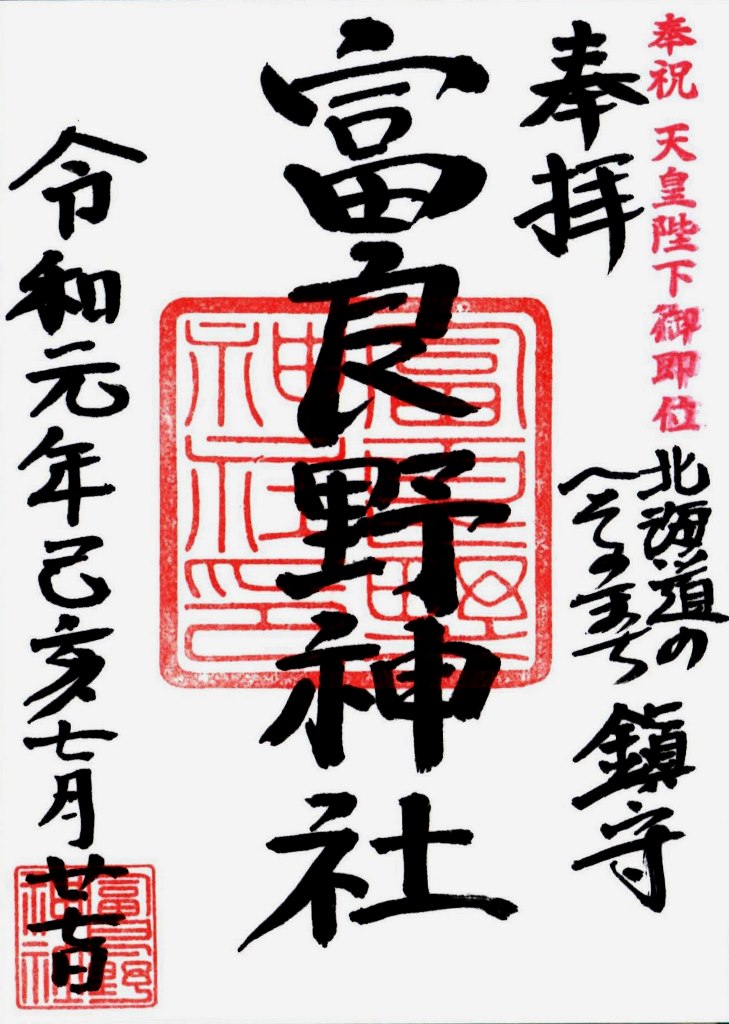 奉祝 天皇陛下御即位
奉拝
北海道の
へそのまち
鎮守
富良野神社
富良野
神社印
令和元年己亥七月廿七日
富良野
神社